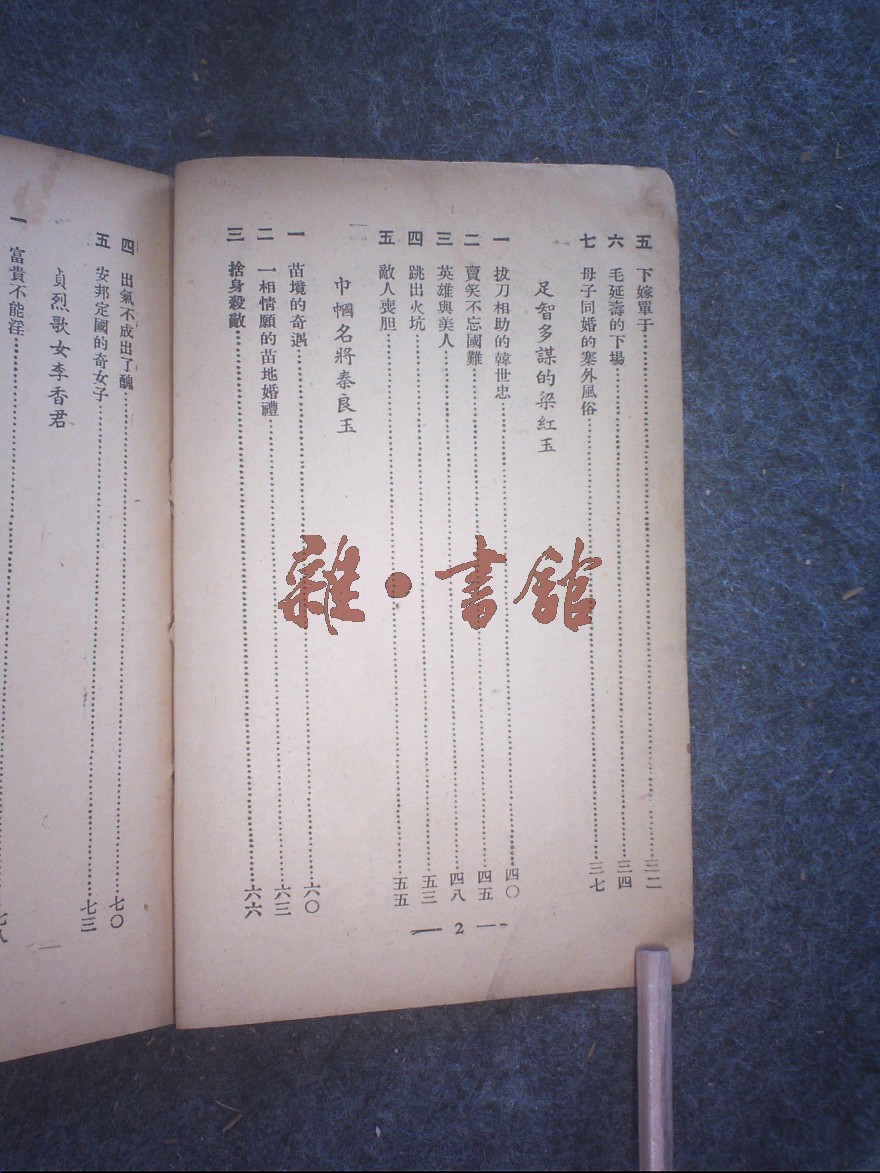 五 下嫁單于…………三二
六 毛延壽的下場…………三四
七 母子同婚的塞外風俗…………三七
足智多謀的梁紅玉
一 拔刀相助的韓世忠…………四〇
二 賣笑不忘國難…………四五
三 英雄與美人…………四八
四 跳出火坑…………五三
五 敵人喪胆…………五五
巾幗名將秦良玉
一 苗境的奇遇…………六〇
二 一相情願的苗地婚禮…………六三
三 捨身殺敵…………六六
— 2 —
四 出氣不成出了醜…………七〇
五 安邦定國的奇女子…………七三
貞烈歌女李香君
一 富貴不能淫…………七八
雜·書館